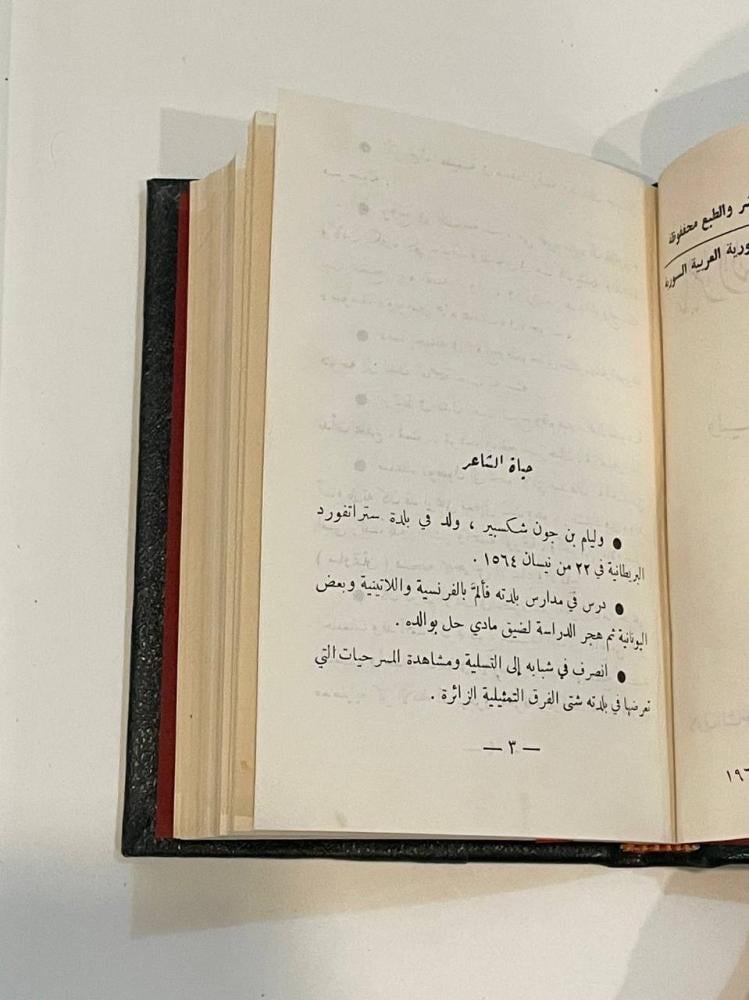 ـشر والطبع محفوظة
ـورية العربية السورية
١٩٦
حياة الشاعر
● وليام بن جون شكسبير ، ولد في بلدة ستراتفورد
البريطانية في ٢٢ من نيسان ١٥٦٤ .
● درس في مدارس بلدته فألمَّ بالفرنسية واللاتينية وبعض
اليونانية ثم هجر الدراسة لضيق مادي حل بوالده .
● انصرف في شبابه إلى التسلية ومشاهدة المسرحيات التي
تعرضها في بلدته شتى الفرق التمثيلية الزائرة .
— ٣ —